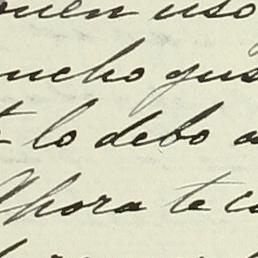 buen uso
mucho gus
te lo debo a
Ahora te co